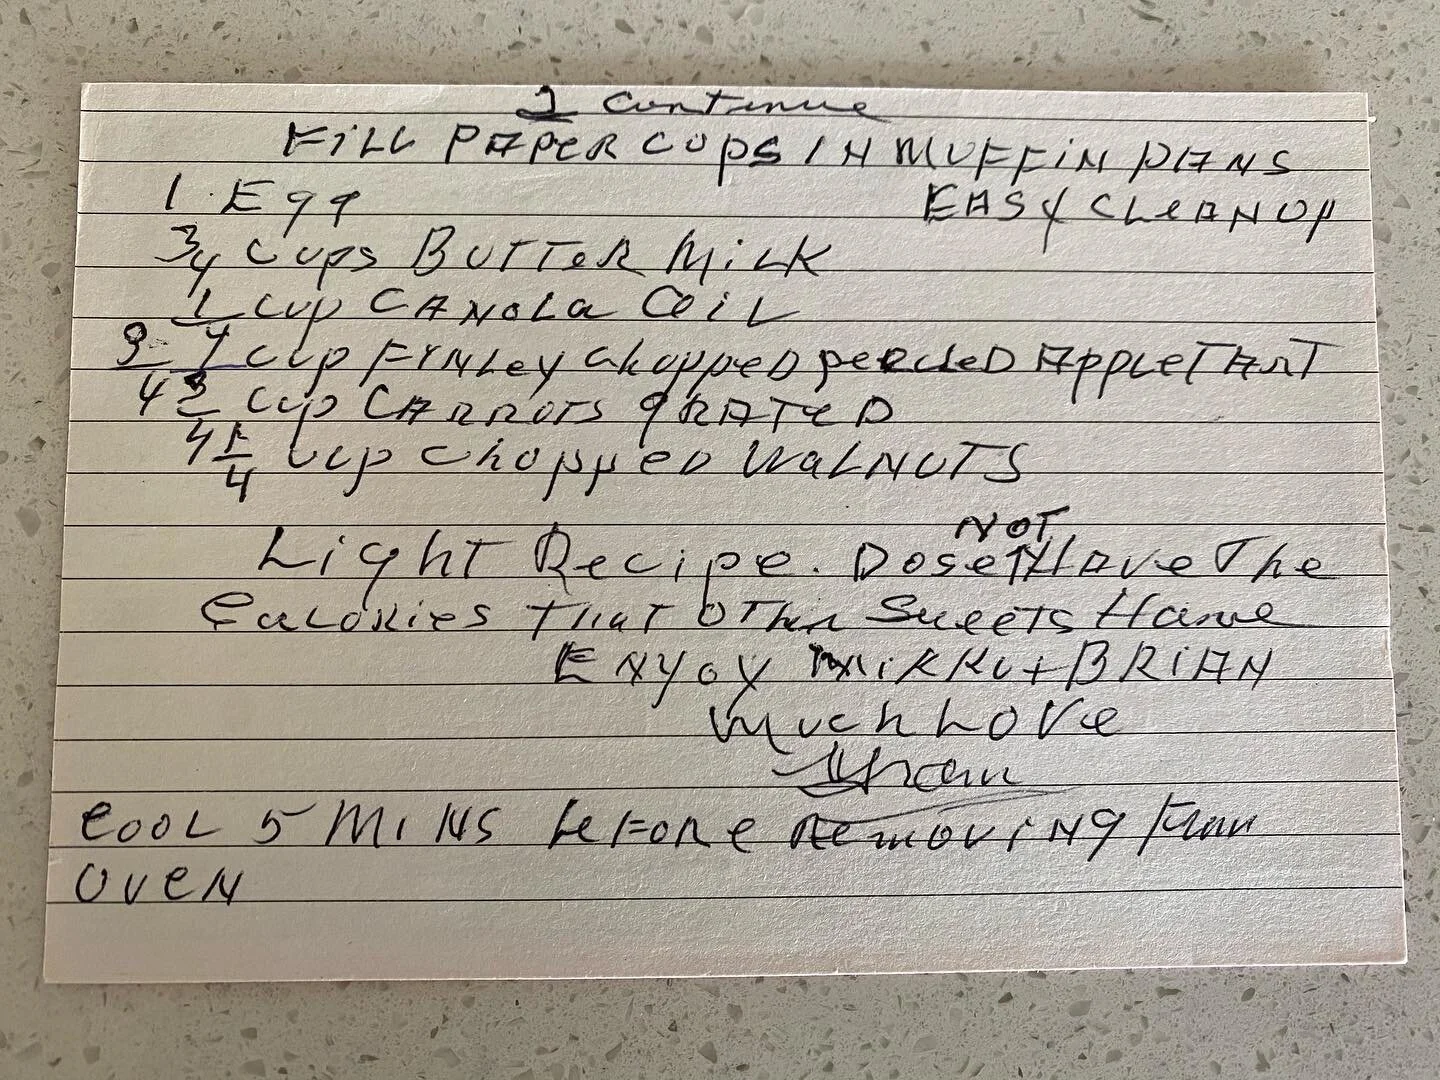 2 Continue
FiLL PAPeR CUPS IN MUFFiN PANS
1 Egg EASY CLeANUP
3/4 Cups BUTTeR MiLK
1/4 Cup CANOLa OiL
3/4 Cup FINLey Chopped peeLeD APPLe TART
3/4 Cup CARROTS gRATeD
1/4 Cup Chopped WaLNUTS
Light Recipe. Dose NOT Have The
CaLORies That Other Sweets Have
ENyoy + BRiAN
Much LoVe
COOL 5 MiNS beFORe ReMOViNg From
OVeN